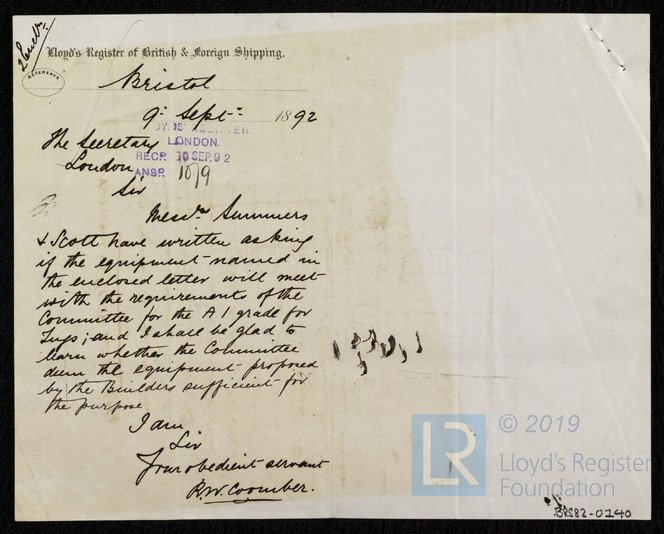 2 Encls.
Lloyd's Register of British & Foreign Shipping.
REFERENCE
Bristol
9: Sept:- 1892
LLOYDS' REGISTER.
LONDON.
RECP. 10 SEP. 92
ANSP. 10/9
The Secretary
London
Sir
Messrs Summers
& Scott have written asking
if the equipment named in
the enclosed letter will meet
with the requirements of the
Committee for the A 1 grade for
Tugs; and I shall be glad to
learn whether the Committee
deem the equipment proposed
by the Builders sufficient for
the purpose
I am
Sir
Your obedient servant
R.W. Coomber.
© 2019
LR
Lloyd's Register
Foundation
BRS82-0140